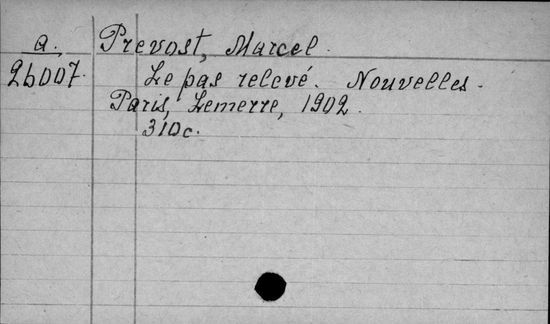 a. Prevost, Marcel.
26007. Le pas relevé. Nouvelles.
Paris, Lemerre, 1902.
310c.